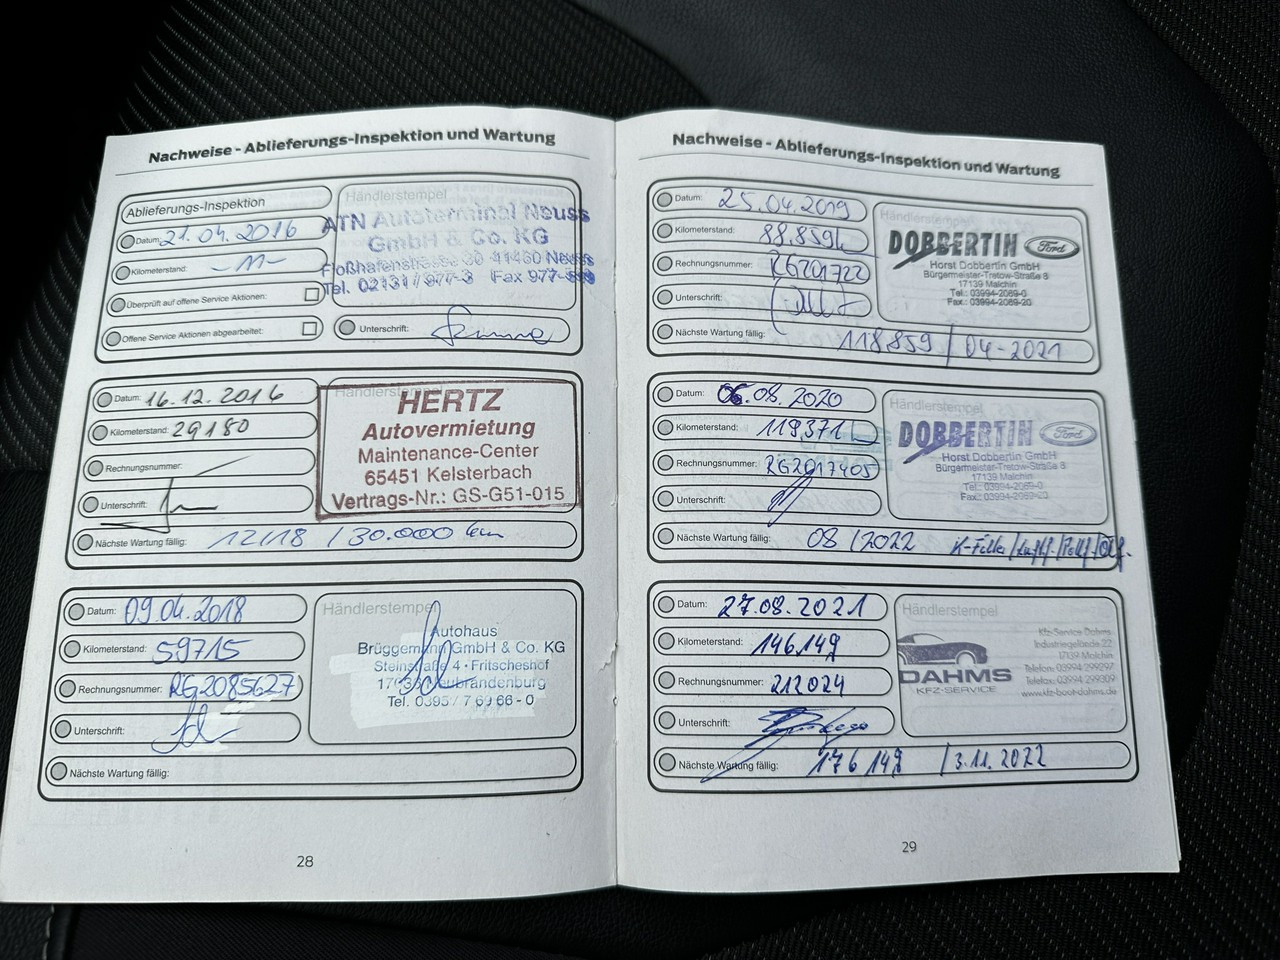 Nachweise - Ablieferungs-Inspektion und Wartung
Ablieferungs-Inspektion
Datum: 21.04.2016
Kilometerstand: -11-
Überprüft auf offene Service Aktionen:
Offene Service Aktionen abgearbeitet:
Händlerstempel
ATN Autoterminal Neuss
GmbH & Co. KG
Floßhafenstrasse 30 41460 Neuss
Tel. 02131 / 977-3 Fax 977-
Unterschrift:
Datum: 16.12.2016
Kilometerstand: 29180
Rechnungsnummer:
Unterschrift:
Nächste Wartung fällig: 12/18 / 30.000 km
Händlerstempel
HERTZ
Autovermietung
Maintenance-Center
65451 Kelsterbach
Vertrags-Nr.: GS-G51-015
Datum: 09.04.2018
Kilometerstand: 59715
Rechnungsnummer: RG2085627
Unterschrift:
Nächste Wartung fällig:
Händlerstempel
Autohaus
Brüggemann GmbH & Co. KG
Steinstraße 4 · Fritscheshof
17033 Neubrandenburg
Tel. 0395 / 7 69 66 - 0
28
Nachweise - Ablieferungs-Inspektion und Wartung
Datum: 25.04.2019
Kilometerstand: 88.859
Rechnungsnummer: RG201722
Unterschrift:
Nächste Wartung fällig: 118859 / 04-2021
Händlerstempel
DOBBERTIN Ford
Horst Dobbertin GmbH
Bürgermeister-Tretow-Straße 8
17139 Malchin
Tel.: 03994-2069-0
Fax.: 03994-2069-20
Datum: 06.08.2020
Kilometerstand: 119371
Rechnungsnummer: RG2017405
Unterschrift:
Nächste Wartung fällig: 08/2022 K-Filter/Luftf./Pollf./Ölf.
Händlerstempel
DOBBERTIN Ford
Horst Dobbertin GmbH
Bürgermeister-Tretow-Straße 8
17139 Malchin
Tel.: 03994-2069-0
Fax.: 03994-2069-20
Datum: 27.08.2021
Kilometerstand: 146.149
Rechnungsnummer: 212024
Unterschrift:
Nächste Wartung fällig: 176149 / 3.11.2022
Händlerstempel
DAHMS
KFZ-SERVICE
Kfz-Service Dahms
Industriegelände 22
17139 Malchin
Telefon: 03994 299297
Telefax: 03994 299309
www.kfz-boot-dahms.de
29